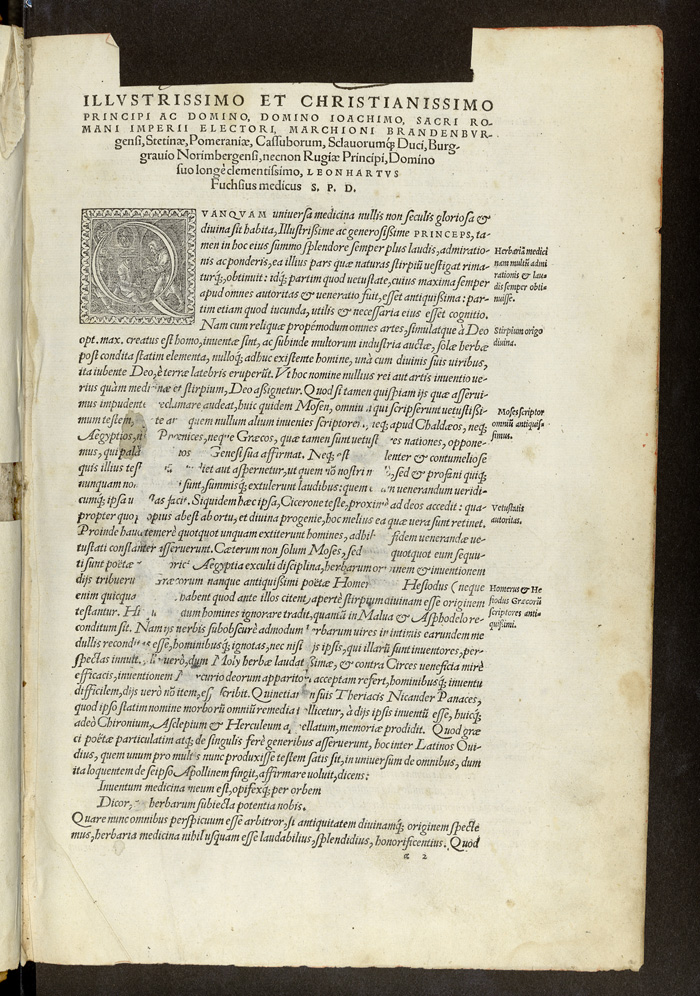 ILLVSTRISSIMO ET CHRISTIANISSIMO
PRINCIPI AC DOMINO, DOMINO IOACHIMO, SACRI RO-
MANI IMPERII ELECTORI, MARCHIONI BRANDENBVR-
gensi, Stetinæ, Pomeraniæ, Cassuborum, Sclauorumq́; Duci, Burg-
grauio Norimbergensi, necnon Rugiæ Principi, Domino
suo longè clementissimo, LEONHARTVS
Fuchsius medicus S. P. D.
QVANQVAM uniuersa medicina nullis non seculis gloriosa &
diuina sit habita, Illustrissime ac generosissime PRINCEPS, ta-
men in hoc eius summo splendore semper plus laudis, admiratio-
nis ac ponderis, ea illius pars quæ naturas stirpiũ uestigat rima-
turq́;, obtinuit: idq́; partim quod uetustate, cuius maxima semper
apud omnes autoritas & ueneratio fuit, esset antiquißima: par-
tim etiam quod iucunda, utilis & necessaria eius esset cognitio.
Nam cum reliquæ propémodum omnes artes, simulatque à Deo
opt. max. creatus est homo, inuentæ sint, ac subinde multorum industria auctæ, solæ herbæ
post condita statim elementa, nulloq́; adhuc existente homine, unà cum diuinis suis uiribus,
ita iubente Deo, è terræ latebris eruperũt. Vt hoc nomine nullius rei aut artis inuentio ue-
rius quàm medi næ et stirpium, Deo aßignetur. Quod si tamen quispiam ijs quæ asserui-
mus impudente reclamare audeat, huic quidem Mosen, omniũ qui scripserunt uetustißi-
mum testem, te quem nullum alium inuenies scriptorem, neq; apud Chaldæos, neq;
Aegyptios, n Phœnices, neque Græcos, quæ tamen sunt uetust es nationes, oppone-
mus, qui pala tos Genesi sua affirmat. Neq; lenter & contumeliose
quis illius tes diet aut aspernetur, ut quem nõ nostri , sed & profani quiq;
nunquam non sint, summisq́; extulerunt laudibus: quem uenerandum ueridi-
cumq́; ipsa u as facit. Siquidem hæc ipsa, Cicerone teste, proximè ad deos accedit: qua-
propter quo propius abest ab ortu, et diuina progenie, hoc melius ea quæ uera sunt retinet.
Proinde haud temerè quotquot unquam extiterunt homines, adhib fidem uenerandæ ue-
tustati constanter asseruerunt. Cæterum non solum Moses, sed quotquot eum sequu-
ti sunt poëtæ Aegyptia exculti disciplina, herbarum originem & inuentionem
dijs tribueru Græcorum nanque antiquißimi poëtæ Homer Hesiodus (neque
enim quicqua habent quod ante illos citent, apertè stirpium diuinam esse originem
testantur. H dum homines ignorare tradit, quantũ in Malua & Asphodelo re-
conditum sit. Nam ijs uerbis subobscurè admodum herbarum uires in intimis earundem me
dullis recondi esse, hominibusq́; ignotas, nec nisi ijs ipsis, qui illarũ sunt inuentores, per-
spectas innuit. uerò, dum Moly herbæ laudat ßimæ, & contra Circes ueneficia mirè
efficacis, inuentionem Mercurio deorum apparitori acceptam refert, hominibusq́; inuentu
difficilem, dijs uerò nõ item, es scribit. Quinetiam in suis Theriacis Nicander Panaces,
quod ipso statim nomine morborũ omniũ remedia pollicetur, à dijs ipsis inuentũ esse, huicq́;
adeò Chironium, Asclepium & Herculeum appellatum, memoriæ prodidit. Quod græ
ci poëtæ particulatim atq́; de singulis ferè generibus asseruerunt, hoc inter Latinos Oui-
dius, quem unum pro multis nunc produxisse testem satis sit, in uniuersum de omnibus, dum
ita loquentem de seipso Apollinem fingit, affirmare uoluit, dicens:
Inuentum medicina meum est, opifexq́; per orbem
Dicor, herbarum subiecta potentia nobis.
Quare nunc omnibus perspicuum esse arbitror, si antiquitatem diuinamq́; originem specte
mus, herbaria medicina nihil usquam esse laudabilius, splendidius, honorificentius. Quod
a 2
Herbariã medici
nam multũ admi
rationis & lau-
dis semper obti-
nuisse.
Stirpium origo
diuina.
Moses scriptor
omniũ antiquis-
simus.
Vetustatis
autoritas.
Homerus & He
siodus Græcorũ
scriptores anti-
quißimi.